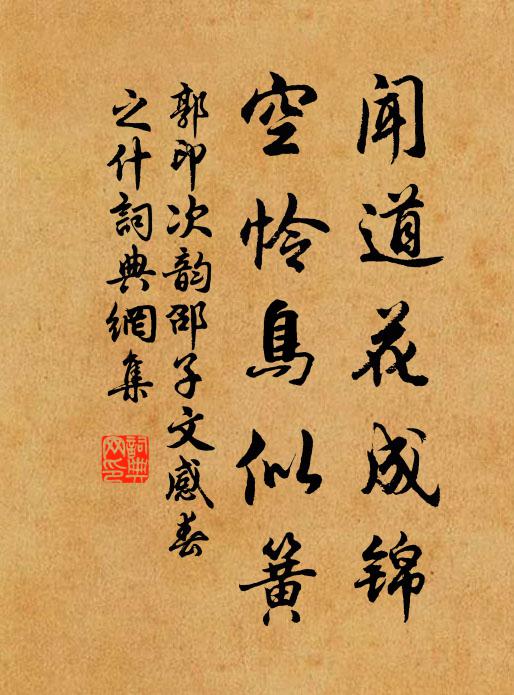 闻道花成锦
空怜鳥似簧
郭印次韵邵子文感春
之什詞典網集
詞典网印